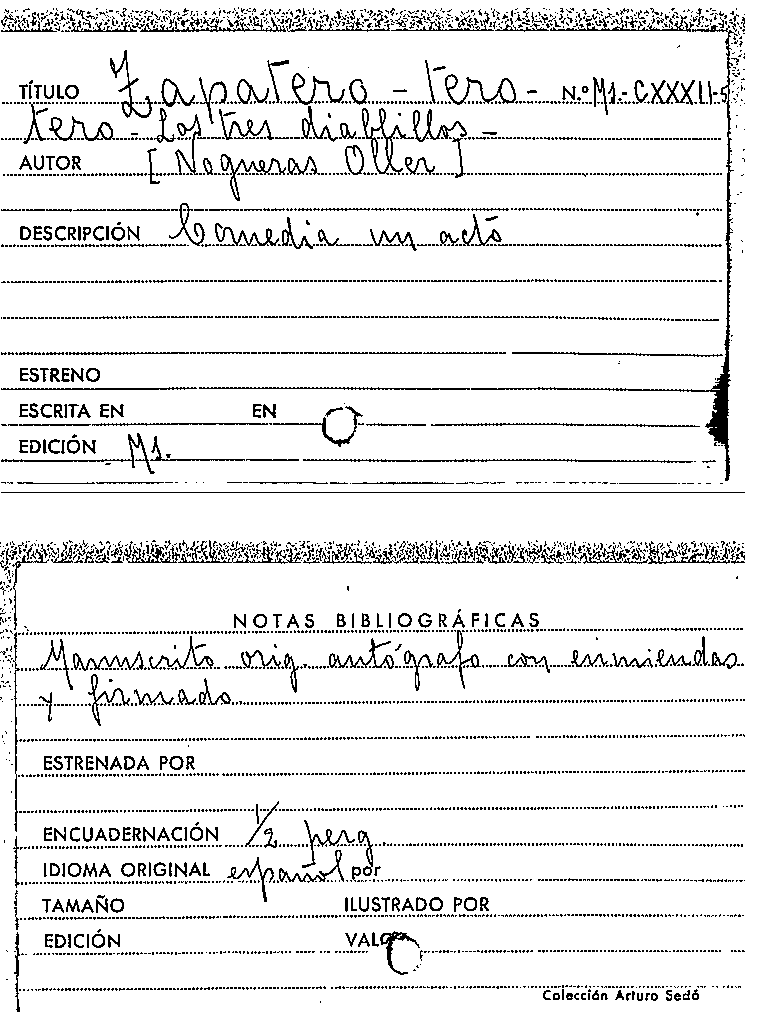 TÍTULO Zapatero - tero - N.º Ms.- CXXXII-5
tero - Los tres diablillos -
AUTOR [Nogueras Oller]
DESCRIPCIÓN Comedia un acto
ESTRENO
ESCRITA EN EN
EDICIÓN Ms.
NOTAS BIBLIOGRÁFICAS
Manuscrito orig. autógrafo con enmiendas
y firmado.
ESTRENADA POR
ENCUADERNACIÓN 1/2 perg.
IDIOMA ORIGINAL español por
TAMAÑO ILUSTRADO POR
EDICIÓN VALOR
Colección Arturo Sedó